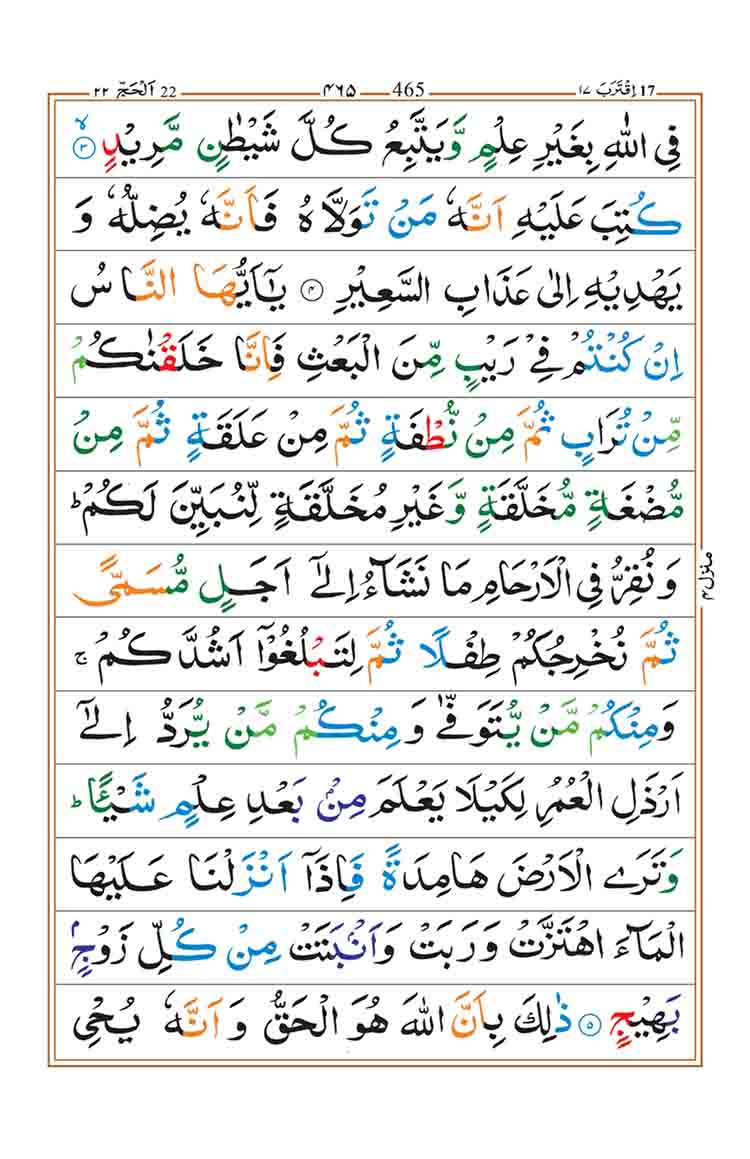 اِقْتَرَبَ ١٧ 17 465 ۴۶۵ 22 اَلْحَجّ ٢٢
فِی اللّٰهِ بِغَيْرِ عِلْمٍ وَّيَتَّبِعُ كُلَّ شَيْطٰنٍ مَّرِيْدٍ ۙ‏ ۳
كُتِبَ عَلَيْهِ اَنَّهٗ مَنْ تَوَلَّاهُ فَاَنَّهٗ يُضِلُّهٗ وَ
يَهْدِيْهِ اِلٰى عَذَابِ السَّعِيْرِ ۴ يٰۤاَيُّهَا النَّاسُ
اِنْ كُنْتُمْ فِىْ رَيْبٍ مِّنَ الْبَعْثِ فَاِنَّا خَلَقْنٰكُمْ
مِّنْ تُرَابٍ ثُمَّ مِنْ نُّطْفَةٍ ثُمَّ مِنْ عَلَقَةٍ ثُمَّ مِنْ
مُّضْغَةٍ مُّخَلَّقَةٍ وَّغَيْرِ مُخَلَّقَةٍ لِّنُبَيِّنَ لَكُمْ ؕ
وَنُقِرُّ فِى الْاَرْحَامِ مَا نَشَآءُ اِلٰٓى اَجَلٍ مُّسَمًّى
ثُمَّ نُخْرِجُكُمْ طِفْلًا ثُمَّ لِتَبْلُغُوْۤا اَشُدَّكُمْ ۚ
وَمِنْكُمْ مَّنْ يُّتَوَفّٰى وَمِنْكُمْ مَّنْ يُّرَدُّ اِلٰٓى
اَرْذَلِ الْعُمُرِ لِكَيْلَا يَعْلَمَ مِنْۢ بَعْدِ عِلْمٍ شَيْــًٔا ؕ
وَتَرَى الْاَرْضَ هَامِدَةً فَاِذَاۤ اَنْزَلْنَا عَلَيْهَا
الْمَآءَ اهْتَزَّتْ وَرَبَتْ وَاَنْۢبَتَتْ مِنْ كُلِّ زَوْجٍۢ
بَهِيْجٍ ۵ ذٰلِكَ بِاَنَّ اللّٰهَ هُوَ الْحَقُّ وَاَنَّهٗ يُحْىِ
منزل ۴